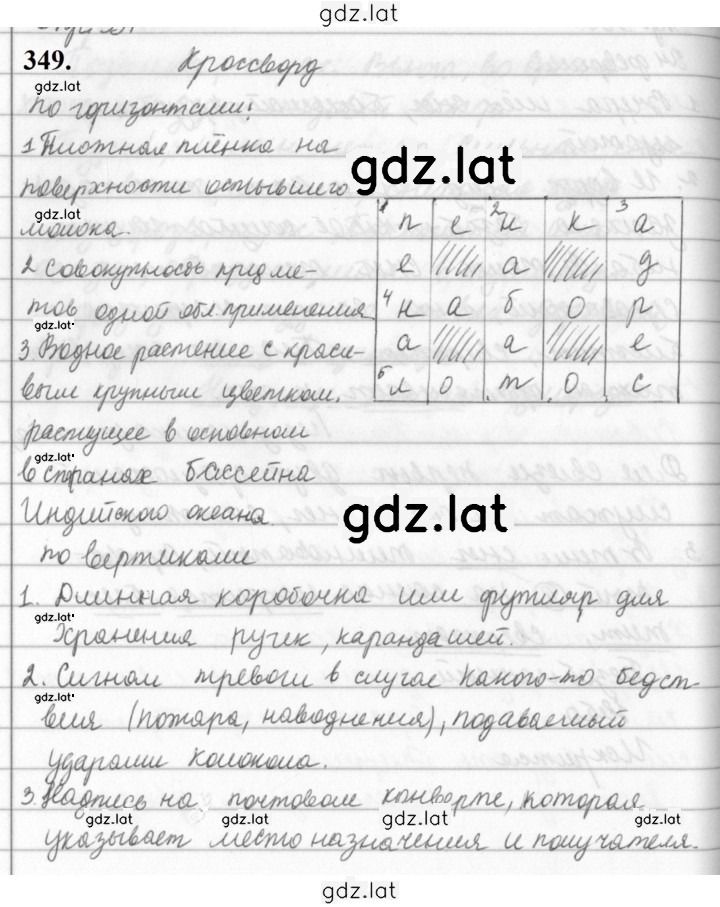 gdz.lat
349. Кроссворд
gdz.lat
По горизонтами:
1 Плотная плёнка на
gdz.lat
поверхности остывшего
gdz.lat
молока.
1 п е 2 н к 3 а
е а д
4 н а б о р
а а е
5 л о т о с
2 Совокупность предме-
тов одной обл. применения
gdz.lat
3 Водное растение с краси-
вым крупным цветком,
растущее в основном
gdz.lat
в странах бассейна
gdz.lat
Индийского океана
по вертиками
1. Длинная коробочка или футляр для
хранения ручек, карандашей.
2. Сигнал тревоги в случае какого-то бедст-
gdz.lat
вия (пожара, наводнения), подаваемый
ударами колокола.
3. Надпись на почтовом конверте, которая
gdz.lat gdz.lat gdz.lat gdz.lat
указывает место назначения и получателя.
gdz.lat